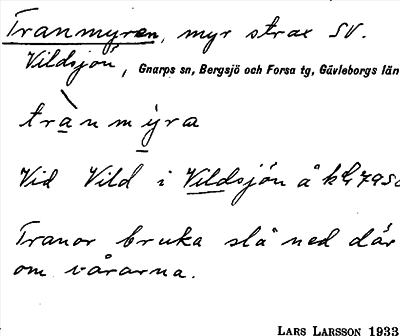 Tranmyren, myr strax SV.
Vildsjön, Gnarps sn, Bergsjö och Forsa tg, Gävleborgs län
trànmýra
Vid Vild i Vildsjön å
Tranor bruka slå ned där
om vårarna.
LARS LARSSON 1933